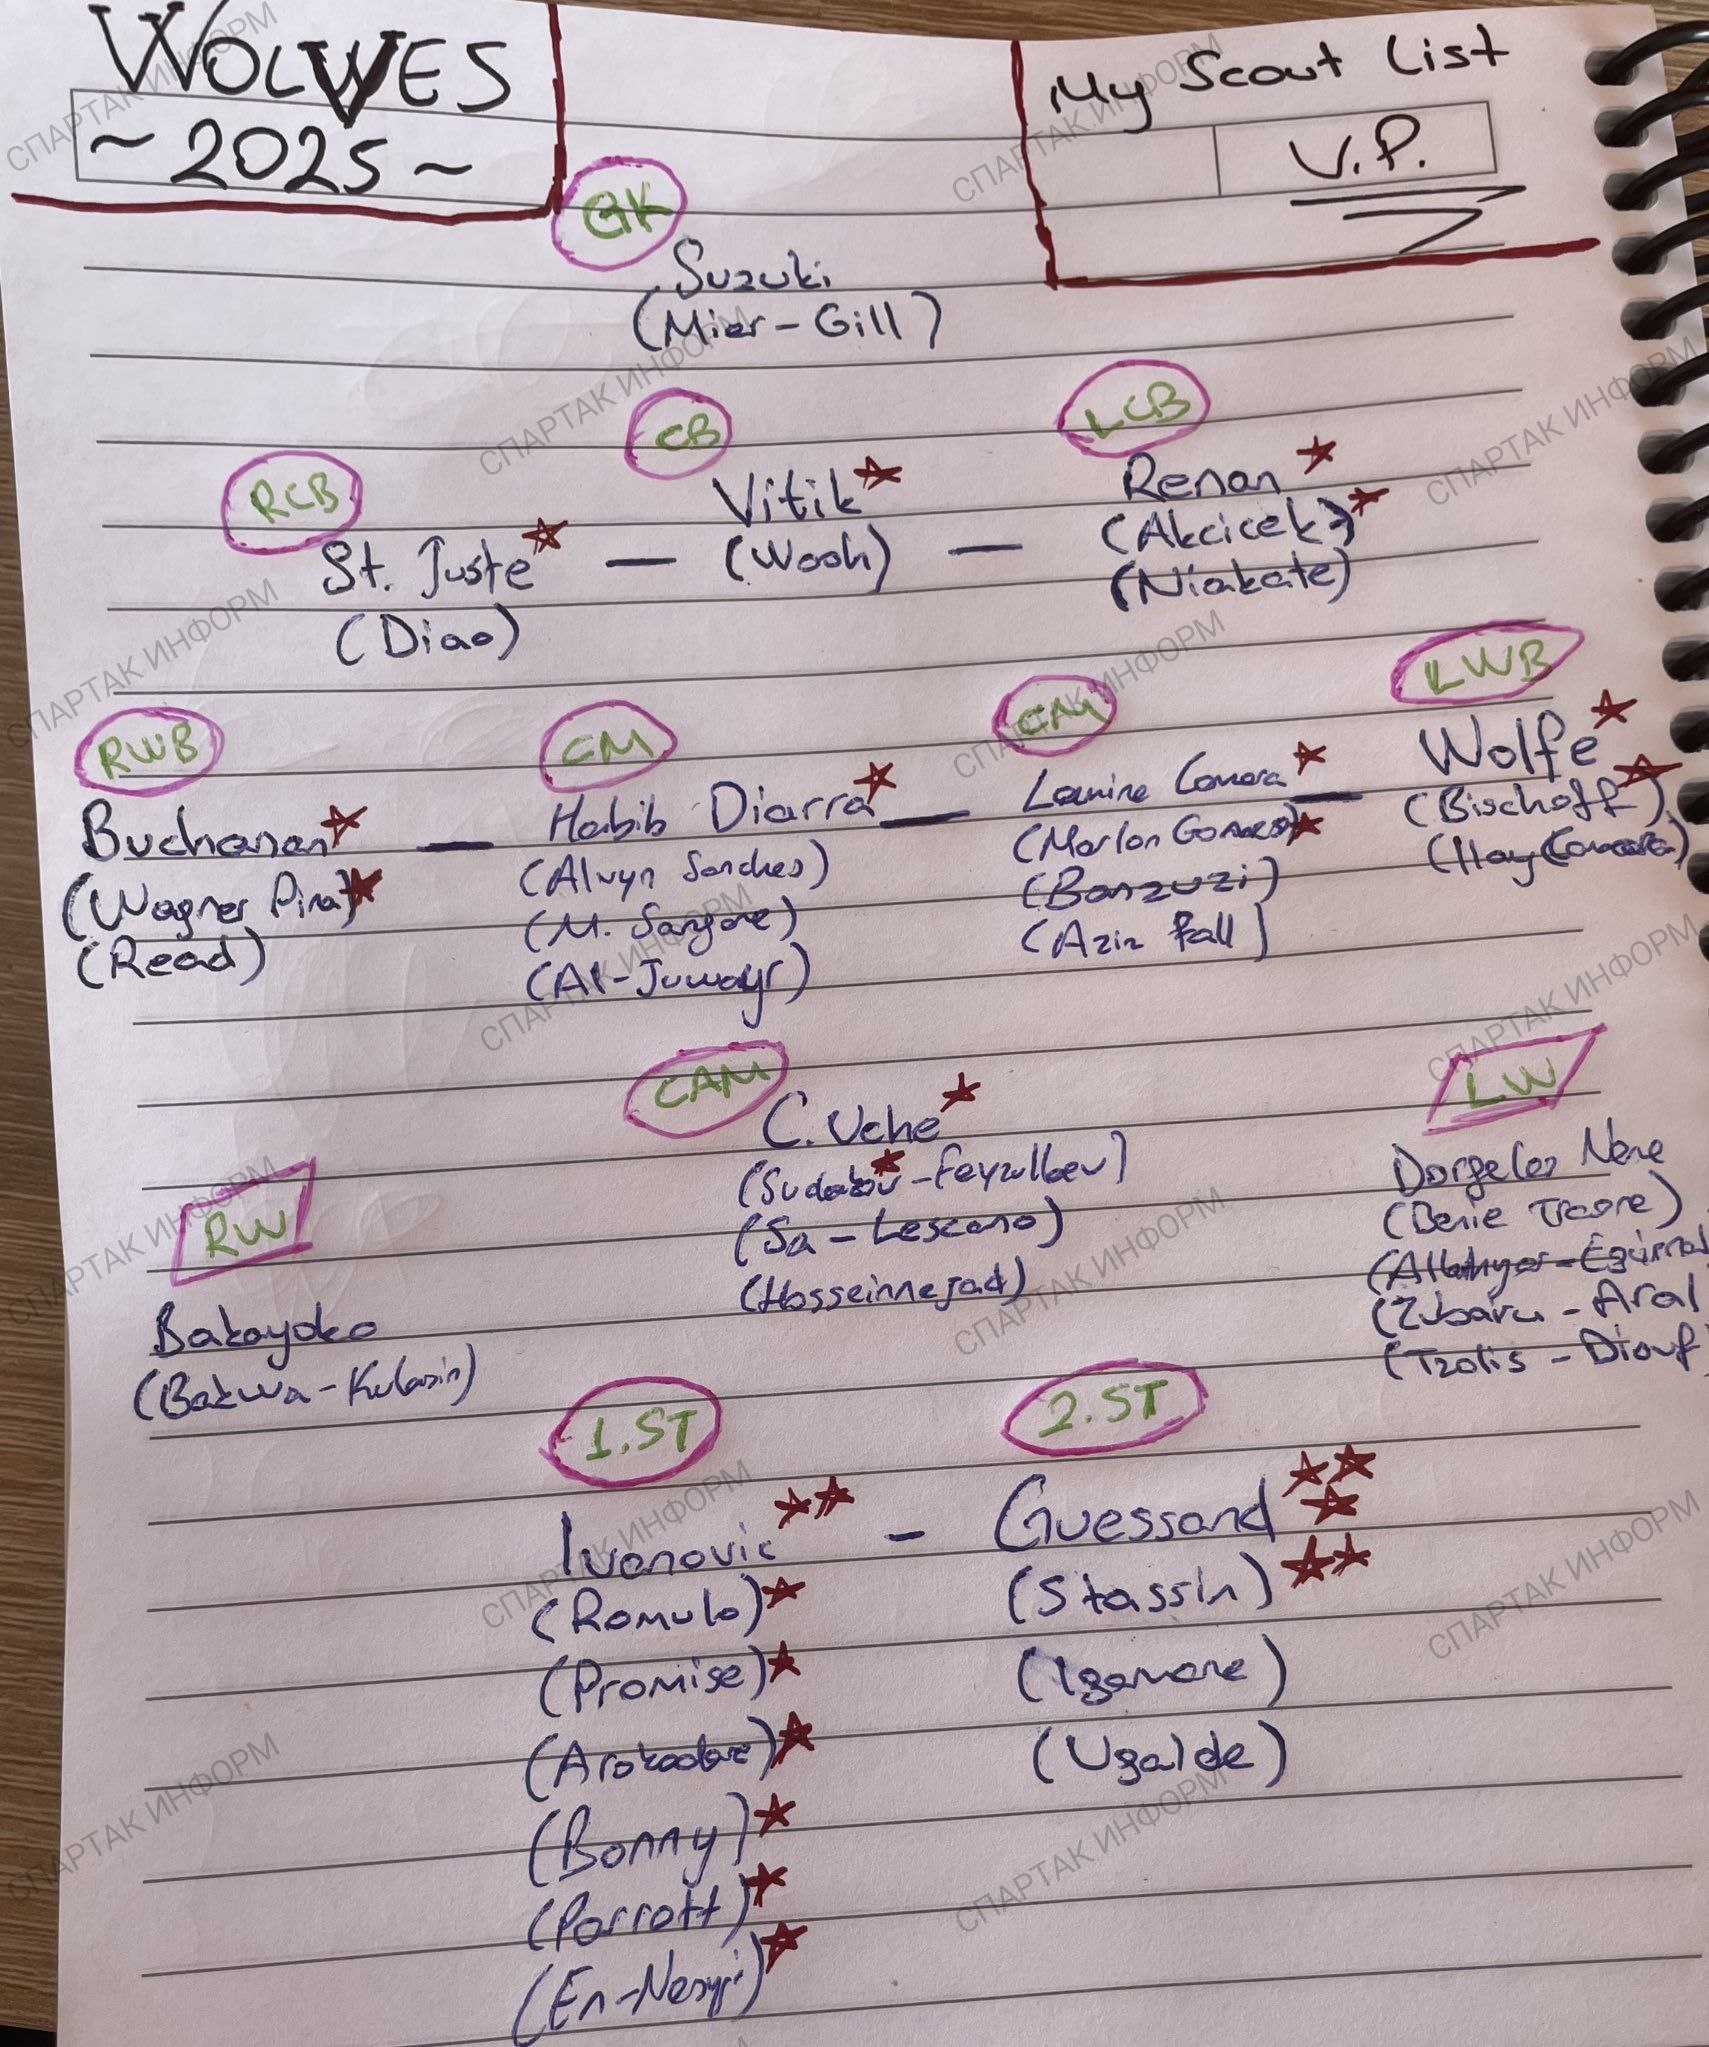 WOLVES
~ 2025 ~
My Scout List
V.P.
GK
Suzuki
(Mier - Gill)
RCB
St. Juste
(Diao)
CB
Vitik
(Wooh)
LCB
Renan
(Akcicek)
(Niakate)
RWB
Buchanan
(Wagner Pina)
(Read)
CM
Habib Diarra
(Alvyn Sanches)
(M. Sangare)
(Al-Juwayr)
CM
Lamine Camara
(Marlon Gomes)
(Banzuzi)
(Aziz Fall)
LWB
Wolfe
(Bischoff)
(Hay Camara)
CAM
C. Uche
(Sudakov - Feyzullaev)
(Sa - Lescano)
(Hosseinnejad)
RW
Bakayoko
(Bakwa - Kulasin)
LW
Dorgeles Nene
(Benie Traore)
(Zubairu - Aral
(Tzolis - Diouf)
1.ST
Ivanovic
(Romulo)
(Promise)
(Arokodare)
(Bonny)
(Parrott)
(En-Nesyri)
2.ST
Guessand
(Stassin)
(Igamane)
(Ugalde)
СПАРТАК ИНФОРМ